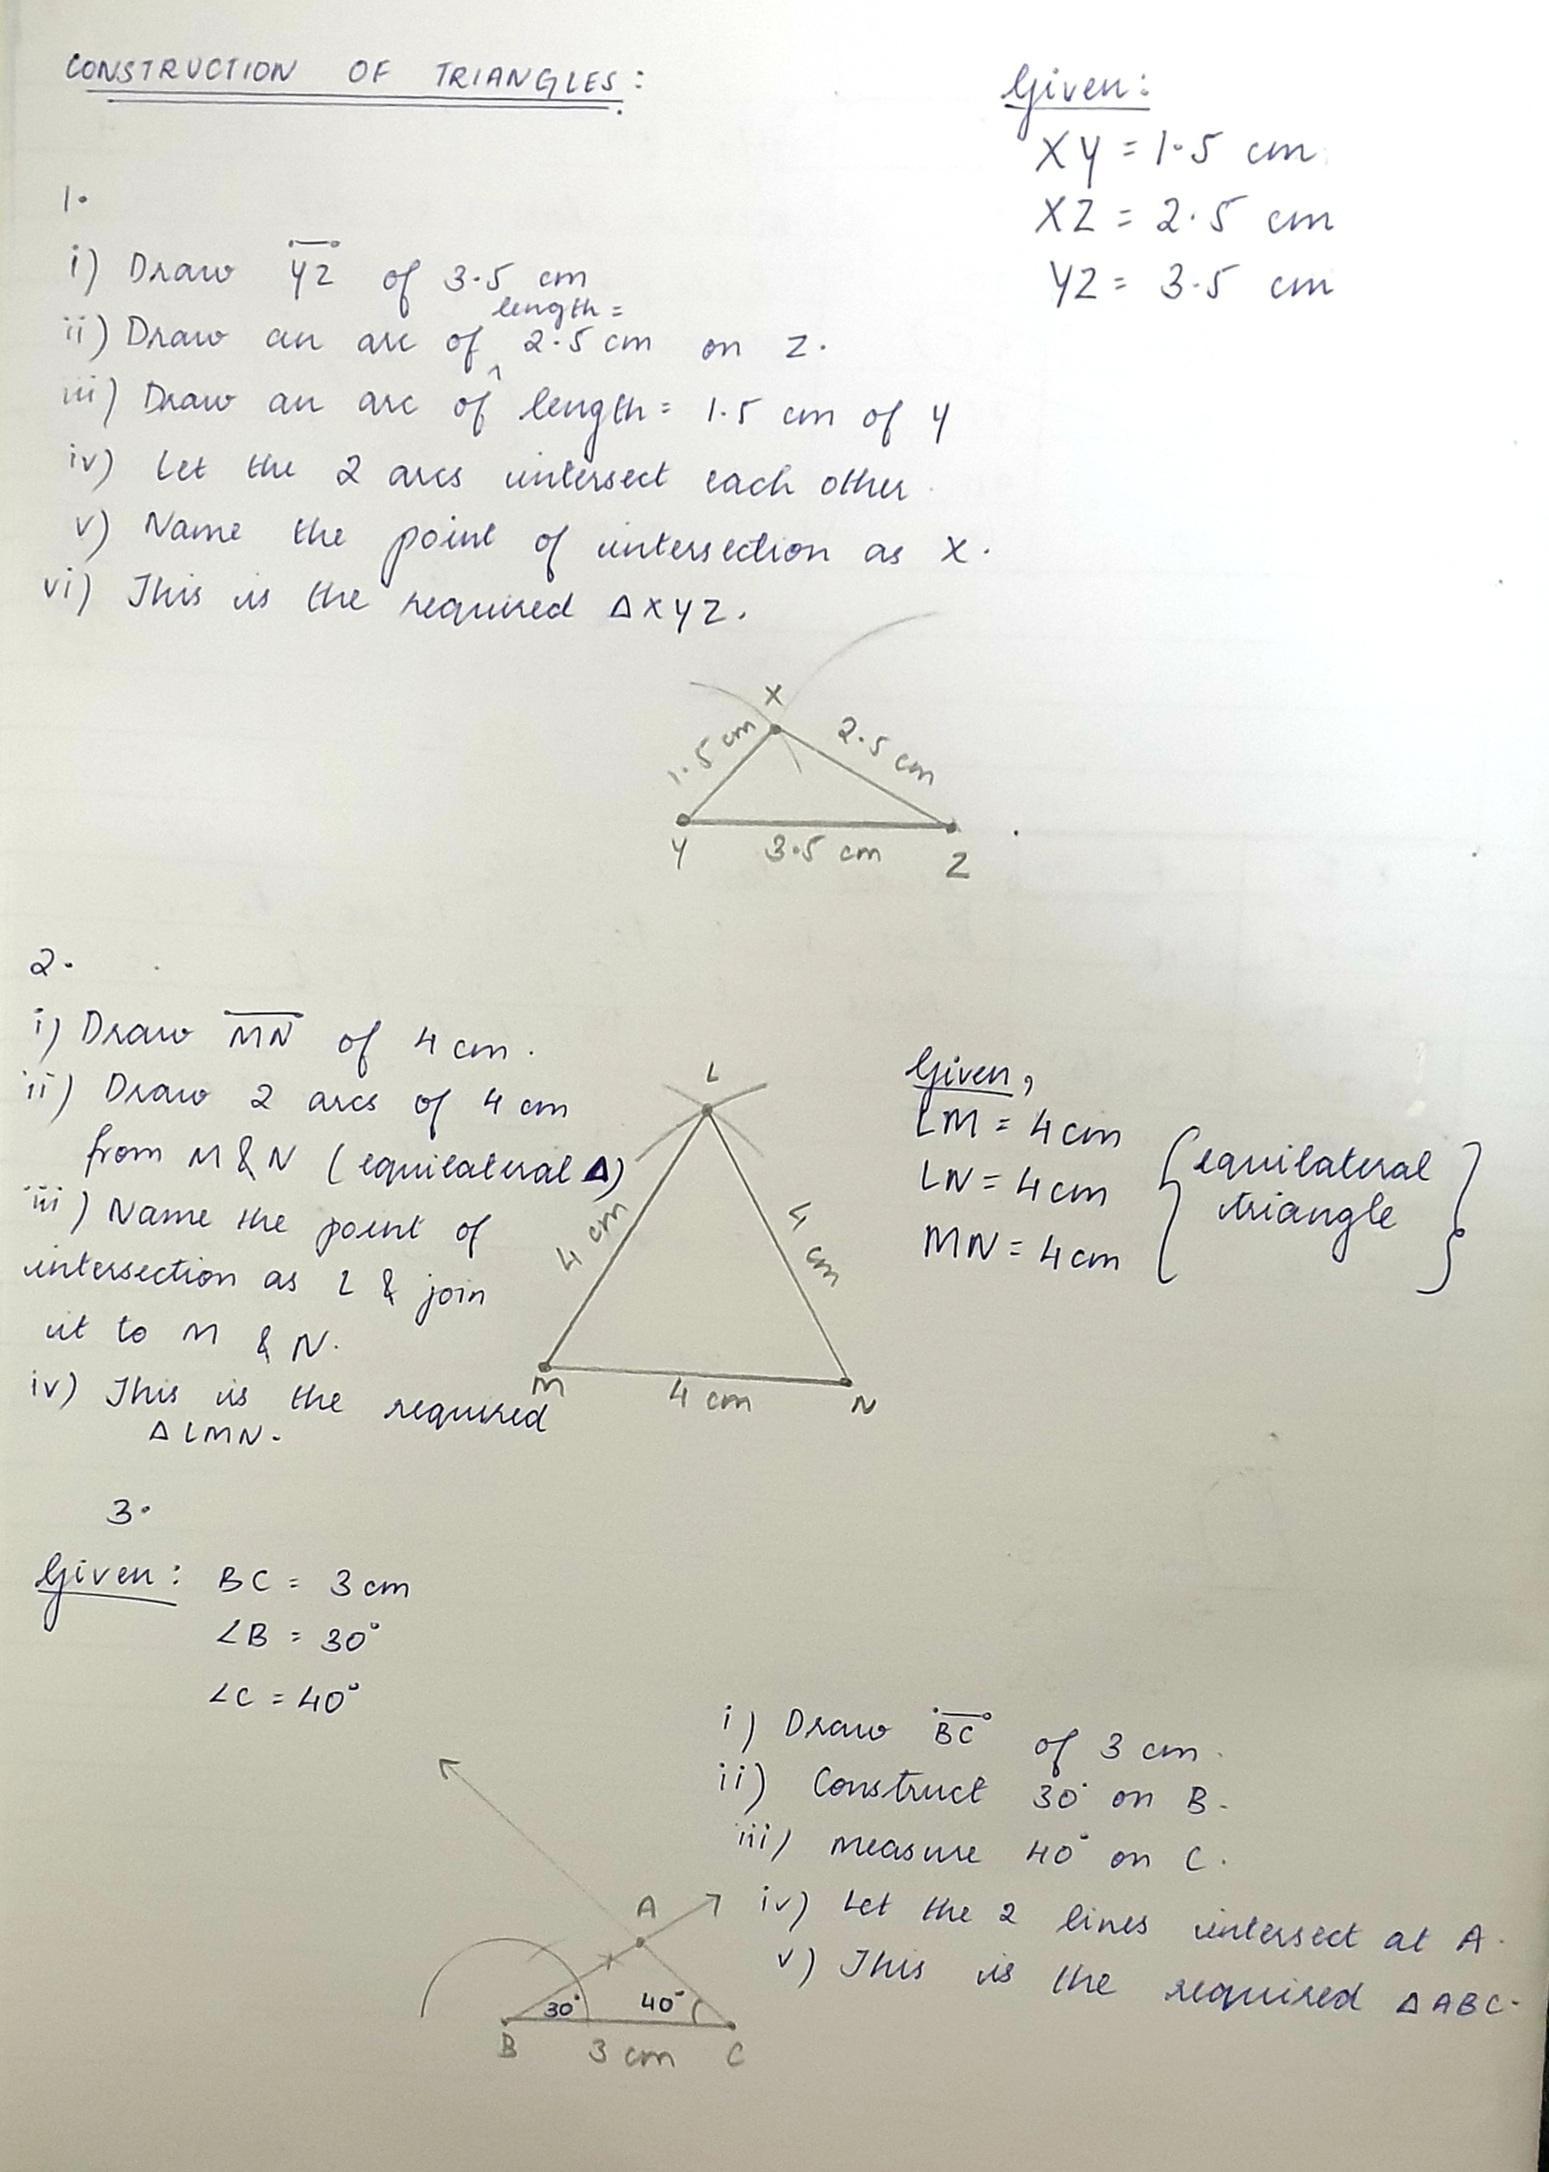 CONSTRUCTION OF TRIANGLES:
Given:
XY = 1.5 cm
XZ = 2.5 cm
YZ = 3.5 cm
1.
i) Draw YZ of 3.5 cm
length =
ii) Draw an arc of ^ 2.5 cm on Z.
iii) Draw an arc of length = 1.5 cm of Y
iv) Let the 2 arcs intersect each other.
v) Name the point of intersection as X.
vi) This is the required Δ XYZ.
X
1.5 cm
2.5 cm
Y
3.5 cm
Z
2.
i) Draw MN of 4 cm.
ii) Draw 2 arcs of 4 cm
from M & N (equilateral Δ)
iii) Name the point of
intersection as L & join
it to M & N.
iv) This is the required
Δ LMN.
L
4 cm
4 cm
M
4 cm
N
Given,
LM = 4 cm
LN = 4 cm
MN = 4 cm
{ equilateral
triangle }
3.
Given: BC = 3 cm
∠B = 30°
∠C = 40°
i) Draw BC of 3 cm.
ii) Construct 30° on B.
iii) Measure 40° on C.
iv) Let the 2 lines intersect at A.
v) This is the required Δ ABC.
A
30°
40°
B
3 cm
C